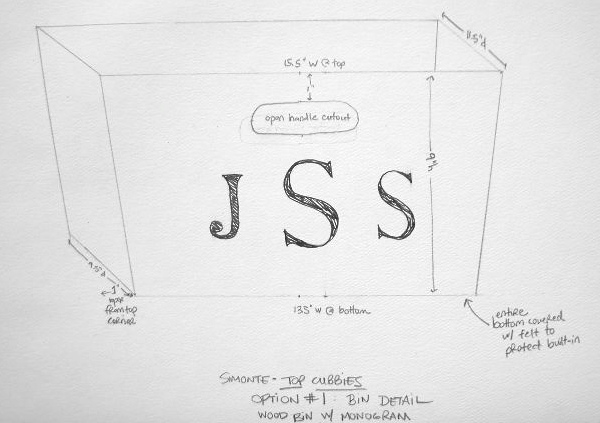 11.5"d
15.5" W @ top
1"
open handle cutout
9"h
J S S
9.5"d
1"
from top
corner
13.5" w @ bottom
entire
bottom covered
w/ felt to
protect built-in
SIMONTE - TOP CUBBIES
OPTION #1 - BIN DETAIL
WOOD BIN W/ MONOGRAM